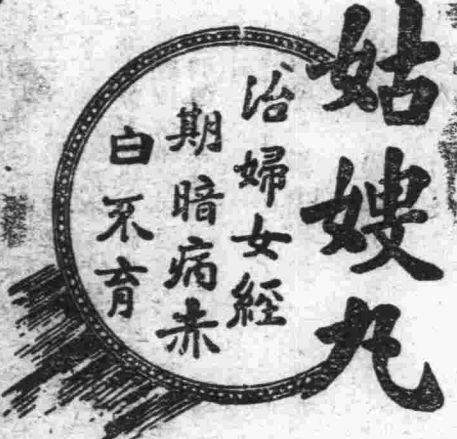 姑嫂丸
治婦女經
期暗病赤
白不育